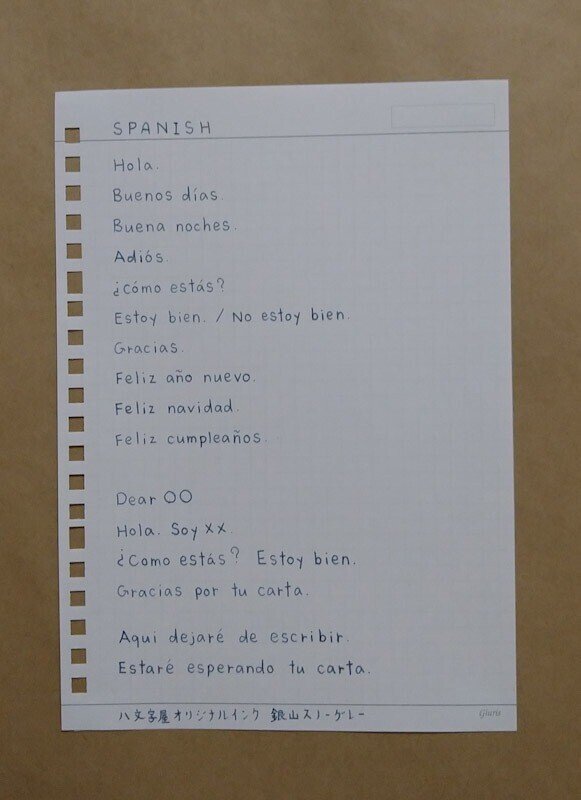 SPANISH
Hola.
Buenos días.
Buena noches.
Adiós.
¿cómo estás?
Estoy bien. / No estoy bien.
Gracias.
Feliz año nuevo.
Feliz navidad.
Feliz cumpleaños.
Dear ○○
Hola. Soy ××.
¿Como estás? Estoy bien.
Gracias por tu carta.
Aqui dejaré de escribir.
Estaré esperando tu carta.
八文字屋オリジナルインク 銀山スノーグレー